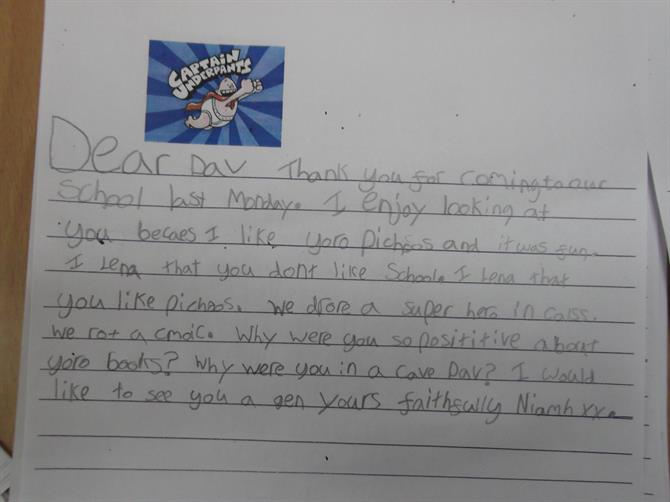 CAPTAIN
UNDERPANTS
Dear Dav Thank you for coming to our
School last Monday. I enjoy looking at
you becaes I like yoro pichaos and it was fun.
I Lena that you dont like School. I Lena that
you like pichaos. we drore a super hero in calss.
we rot a cmoic. Why were you so posititive about
yoro books? Why were you in a cave Dav? I would
like to see you a gen yours faithfully Niamh xx